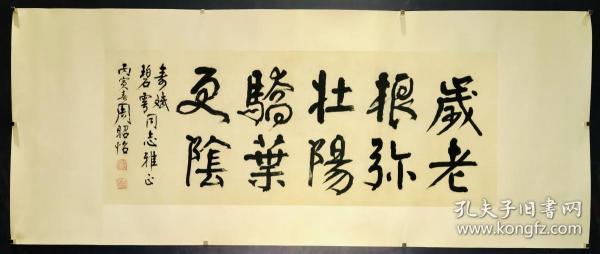 歲老
根弥
壮陽
驕葉
更陰
寿斌
碧雲同志雅正
丙寅春周昭怡
孔夫子旧书网
www.kongfz.com